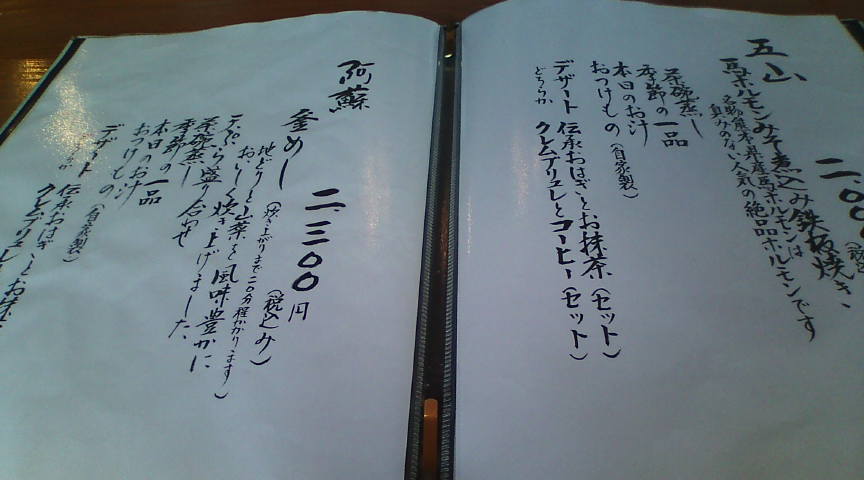 五山
馬ホルモンみそ煮込み鉄板焼き、
二、〇〇
名物熊本県産馬ホルモンは
臭みのない人気の絶品ホルモンです
茶碗蒸し
季節の一品
本日のお汁
おつけもの(自家製)
デザート 伝承おはぎとお抹茶(セット)
どちらか クレムブリュレとコーヒー(セット)
阿蘇
釜めし 二、三〇〇円
(炊き上がりまで二〇分程かかります)
(税込み)
地どりと山菜を風味豊かに
おいしく炊き上げました
天ぷら盛り合わせ
茶碗蒸し
季節の一品
本日のお汁
おつけもの(自家製)
デザート 伝承おはぎとお抹茶
クレムブリュレ